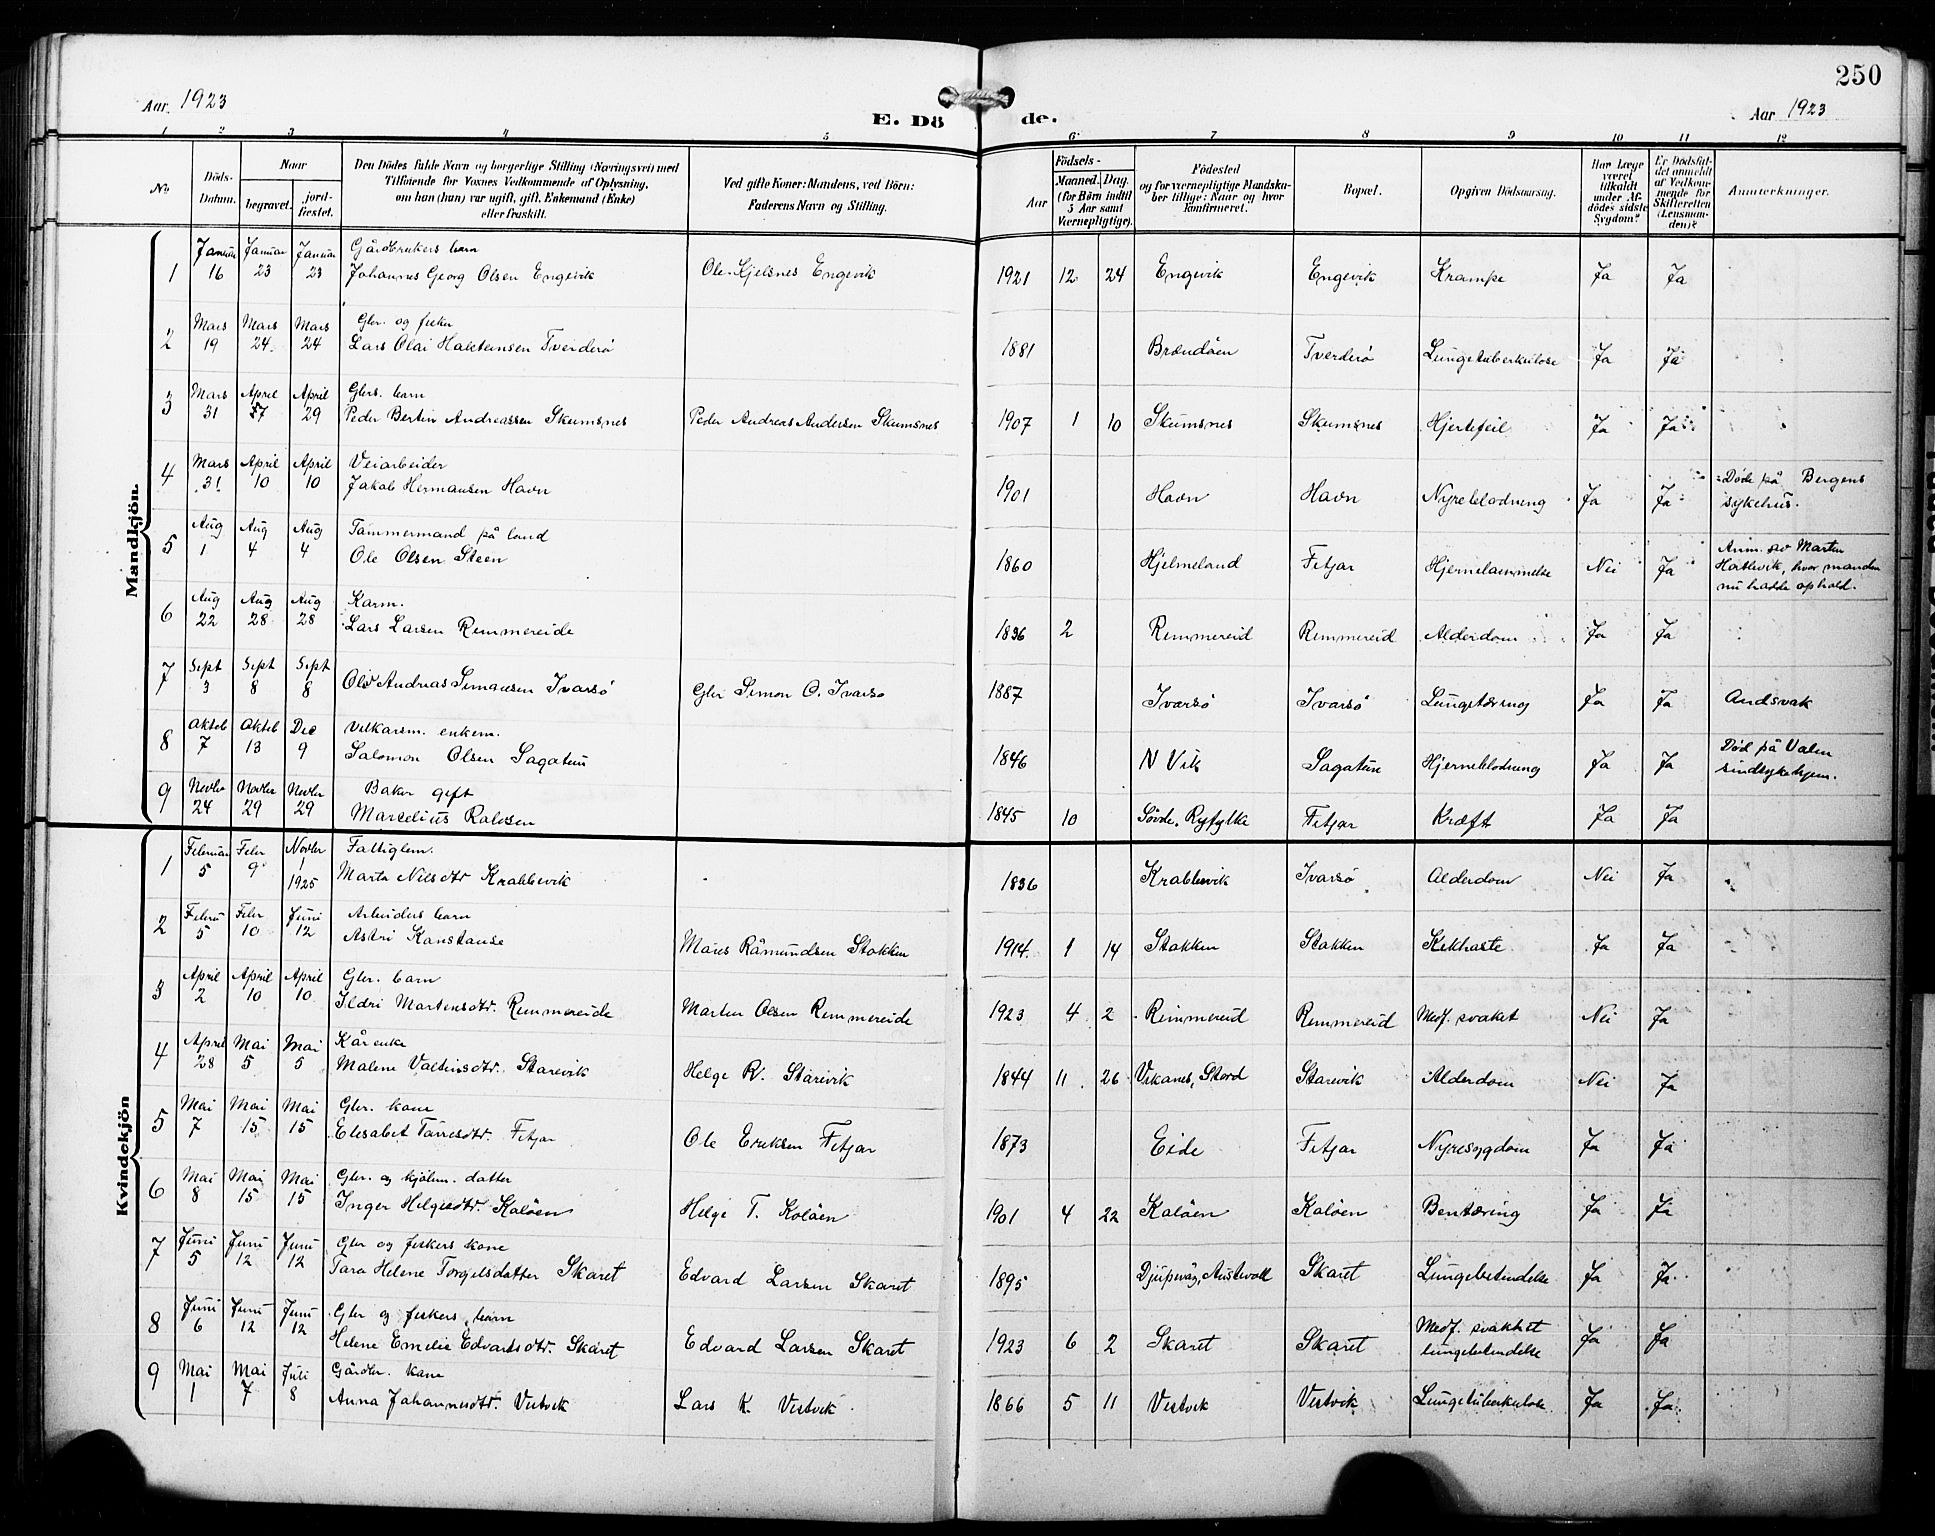 250
Aar 1923
E. Dö de.
Aar 1923
1 2 3 4 5 6 7 8 9 10 11 12
No
Döds-
Datum.
Naar
begravet.
jord-
fæstet.
Den Dödes fulde Navn og borgerlige Stilling (Næringsvei) med
Tilföiende for Voxnes Vedkommende af Oplysning,
om han (hun) var ugift, gift, Enkemand (Enke)
eller fraskilt.
Ved gifte Koner: Mandens, ved Börn:
Faderens Navn og Stilling.
Födsels-
Aar
Maaned. Dag.
(for Börn indtil
5 Aar samt
Værnepligtige).
Födested
og for værnepligtige Mandska-
ber tillige: Naar og hvor
konfirmeret.
Bopæl.
Opgiven Dödsaarsag.
Har Læge
været
tilkaldt
under Af-
dödes sidste
Sygdom?
Er Dödsfal-
det anmeldt
af Vedkom-
mende for
Skifteretten
(Lensman-
den)?
Anmerkninger.
Mandkjön.
1 Januar 16 Januar 23 Januar 23 Gårdbrukers barn
Johannes Georg Olsen Engevik Ole Kjelsnes Engevik 1921 12 24 Engevik Engevik Krampe Ja Ja
2 Mars 19 Mars 24. Mars 24 Gbr. og fisker
Lars Olai Halsteinsen Tverderö 1881 Brandåen Tverderö Lungetuberkulose Ja Ja
3 Mars 31 April April 29 Gbrs. barn
Peder Bertin Andreassen Skumsnes Peder Andreas Andersen Skumsnes 1907 1 10 Skumsnes Skumsnes Hjertefeil Ja Ja
4 Mars 31 April 10 April 10 Veiarbeider
Jakob Hermansen Havn 1901 Havn Havn Nyreblodning Ja Ja Døde på Bergens
sykehus.
5 Aug 1 Aug 4 Aug 4 Tømmermand på land
Ole Olsen Steen 1860 Hjelmeland Fitjar Hjernelammelse Nei Ja Anm. av Marten
hvor manden
nu hadde ophold.
6 Aug 22 Aug 28 Aug 28 Karm.
Lars Larsen Remmereide 1836 2 Remmereid Remmereid Alderdom Ja Ja
7 Sept 3 Sept 8 Sept 8
Ole Andreas Simonsen Ivarsö Gbr Simon O. Ivarsö 1887 Ivarsö Ivarsö Lungetæring Ja Ja Andsvak
8 Oktob 7 Oktob 13 Dec 9 Vilkarsm. enkem.
Salomon Olsen Sagatun 1846 N Vik Sagatun Hjerneblodning Ja Ja Död på Valen
sindsykehjem.
9 Novbr 24 Novbr 29 Novbr 29 Baker gift
Marselius Ralesen 1845 10 Søvde, Ryfylke Fitjar Kræft Ja Ja
Kvindekjön
1 Februar 5 Febr 9 Novbr 1 1925 Fattiglem.
Marta Nilsdtr Krabbevik 1836 Krabbevik Ivarsö Alderdom Nei Ja
2 Febru 5 Febr 10 Juni 12 Arbeiders barn
Astri Konstanse Måns Råmundsen Stokken 1914. 1 14 Stokken Stokken Kikhoste Ja Ja
3 April 2 April 10 April 10 Gbr. barn
Ildri Martensdtr. Remmereide Marten Olsen Remmereide 1923 4 2 Remmereid Remmereid Medf. svaket Nei Ja
4 April 28 Mai 5 Mai 5 Kårenke
Malene Valtinsdtr. Starevik Helge R. Starevik 1844 11 26 Vikanes, Stord Starevik Alderdom Nei Ja
5 Mai 7 Mai 15 Mai 15 Gbr. kone
Elisabet Tørresdtr. Fitjar Ole Eriksen Fitjar 1873 Eide Fitjar Nyresygdom Ja Ja
6 Mai 8 Mai 15 Mai 15 Gbr. og kjøbm. datter
Inger Helgesdtr. Koløen Helge T. Koløen 1901 4 22 Koløen Koløen Bentæring Ja Ja
7 Juni 5 Juni 12 Juni 12 Gbr og fiskers kone
Tora Helene Torgelsdatter Skaret Edvard Larsen Skaret 1895 Djupevåg, Austevoll Skaret Lungebetændelse Ja Ja
8 Juni 6 Juni 12 Juni 12 Gbr og fiskers barn
Helene Emelie Edvardsdtr. Skaret Edvard Larsen Skaret 1923 6 2 Skaret Skaret Medf. svakhet
lungebetændelse Ja Ja
9 Mai 1 Mai 7 Juli 8 Gårdbr. kone
Anna Johannesdtr. Vestvik Lars K. Vestvik 1866 5 11 Vestvik Vestvik Lungetuberkulose. Ja Ja